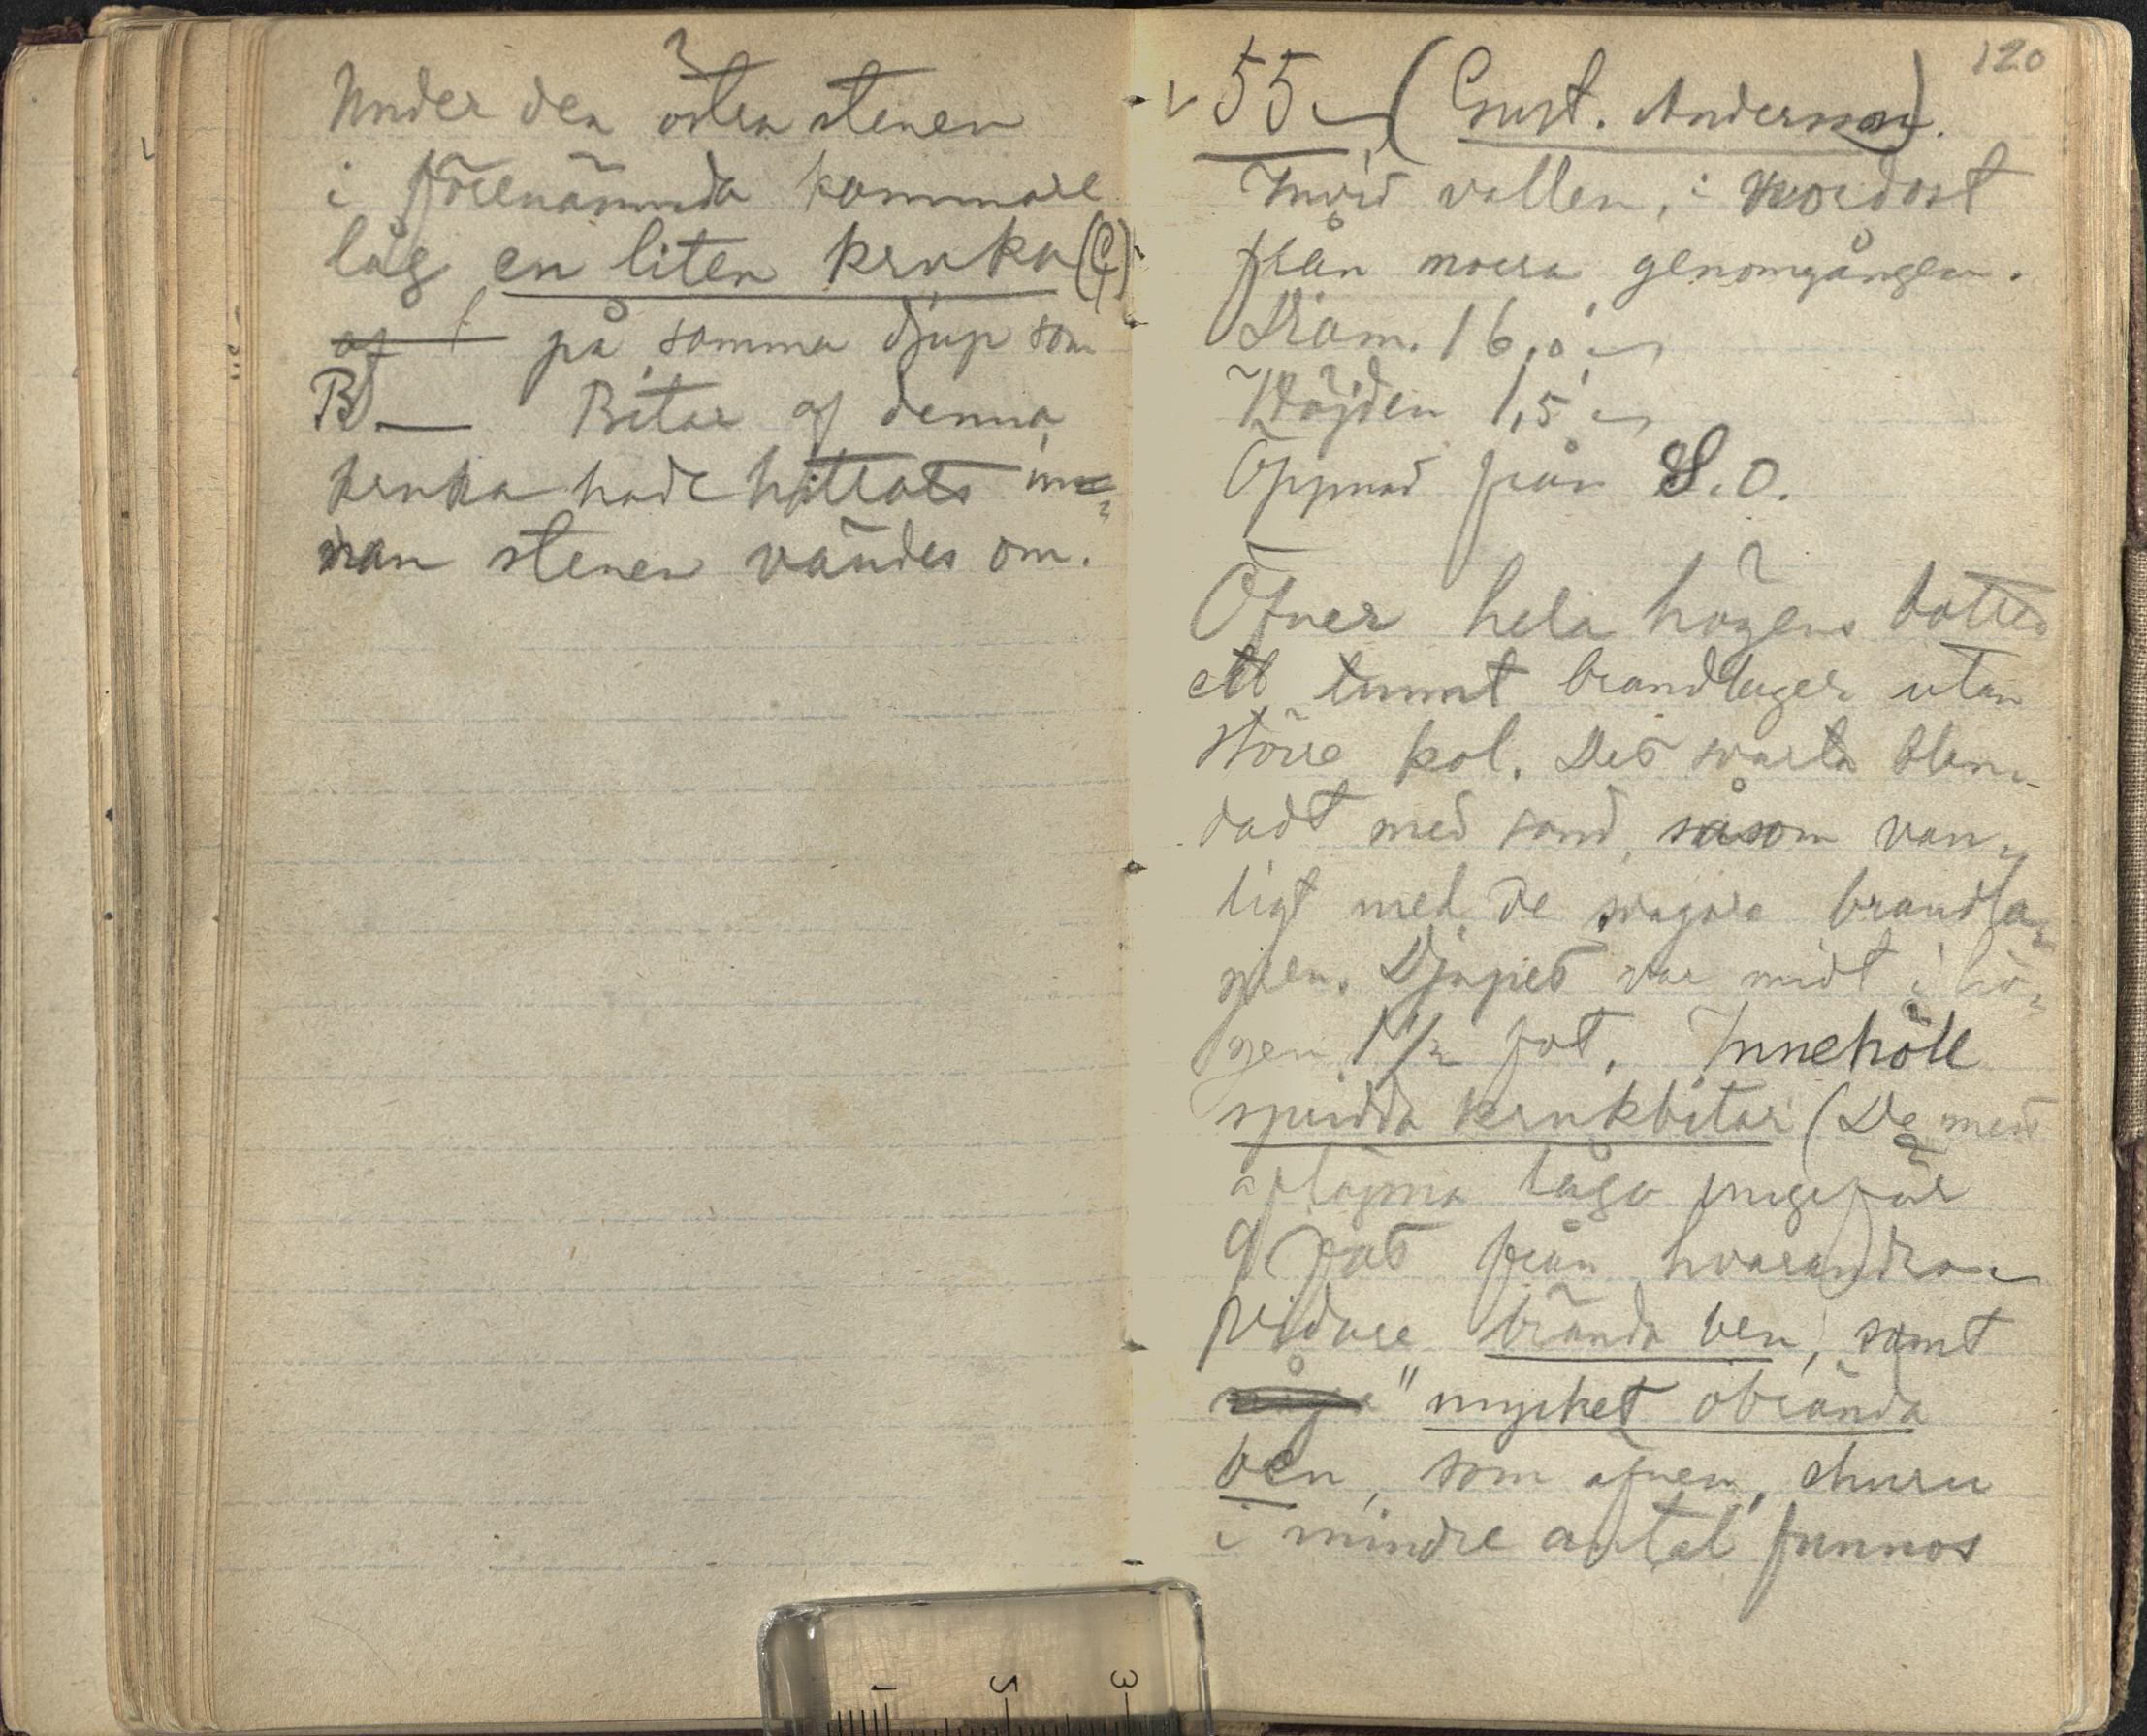 Under den östra stenen
i förenämnda kammare
låg en liten kruka (C)
af på samma djup som
B. — Bitar af denna
kruka hade hittats in=
nan stenen vändes om.
120
55 (Gust. Anderson).
Invid vallen, i nordost
från norra genomgången.
Diam. 16,0'
Höjden 1,5'
Öppnad från S.O.
Öfver hela högens botten
ett tunnt brandlager utan
större kol. Det svarta blan-
dadt med sand, såsom van-
ligt med de svagare brandla=
gren. Djupet var midt i hö=
gen 1 1/2 fot. Innehöll
spridda krukbitar (De mest
aflägsna lågo ungefär
9 fot från hvarandra
vidare brända ben, samt
" mycket obrända
ben, som äfven, ehuru
i mindre antal funnos
1 2 3